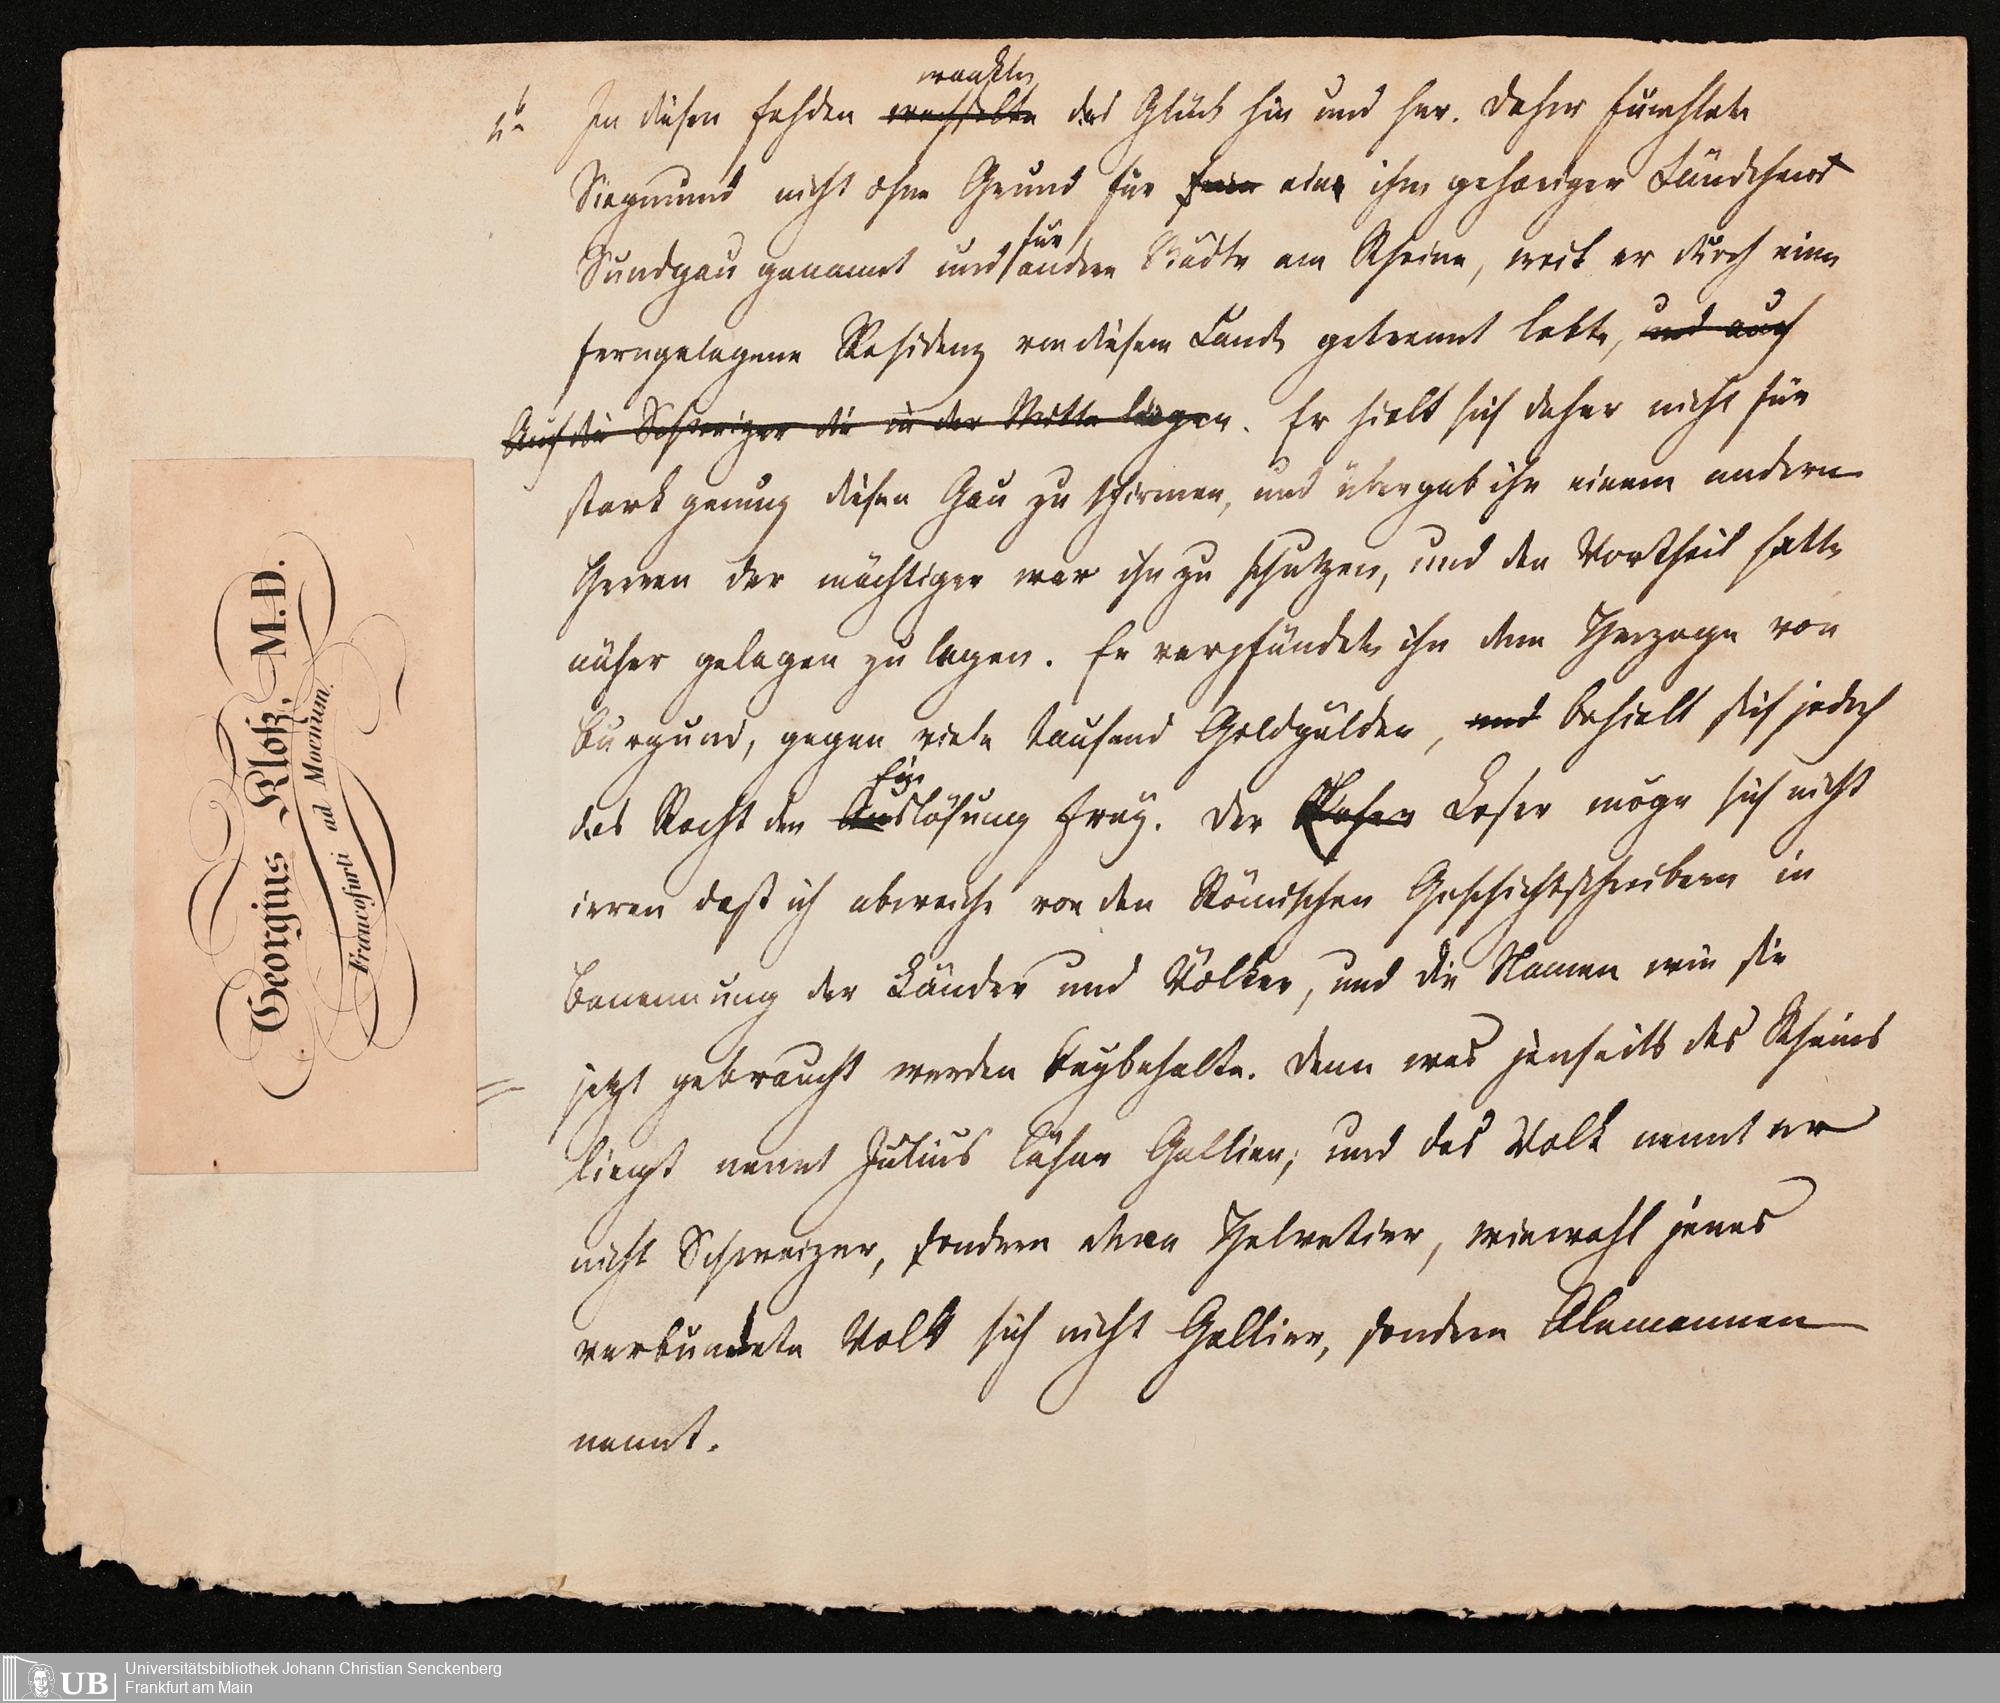 wankte
In diesen Fehden wechselte das Glück hin und her. Daher fürchtete
Siegmund nicht ohne Grund für sein ein ihm gehöriger Ländchens
für
Sundgau genannt und andere Städte am Rheine, weil er durch eine
ferngelegene Residenz von diesem Lande getrennt lebte, und auch
Auf die Schweizer die in der Mitte liegen. Er hielt sich daher nicht für
stark genung diesen Gau zu schirmen, und übergab ihn einem andern
Herren der mächtiger war ihn zu schutzen, und den Vortheil hatte
näher gelegen zu legen. Er verpfändete ihn dem Herzoge von
Burgund, gegen viele tausend Goldgülden, und behielt sich jedoch
Ein
das Recht den Auslösung frey. Der Leser möge sich nicht
irren dass ich abweiche von den Römischen Geschichtschreibern in
Benennung der Länder und Völker, und die Namen wie sie
jetzt gebraucht werden beybehalte. Denn was jenseits des Rheins
liegt nennt Julius Cäsar Gallien; und das Volk nennt er
nicht Schweizer, sondern Helvetier, wiewohl jenes
verbundete Volk sich nicht Gallier, sondern Alemannen
nennt.
Georgius Kloß, M.D.
Francofurti ad Moenum.
UB
Universitätsbibliothek Johann Christian Senckenberg
Frankfurt am Main